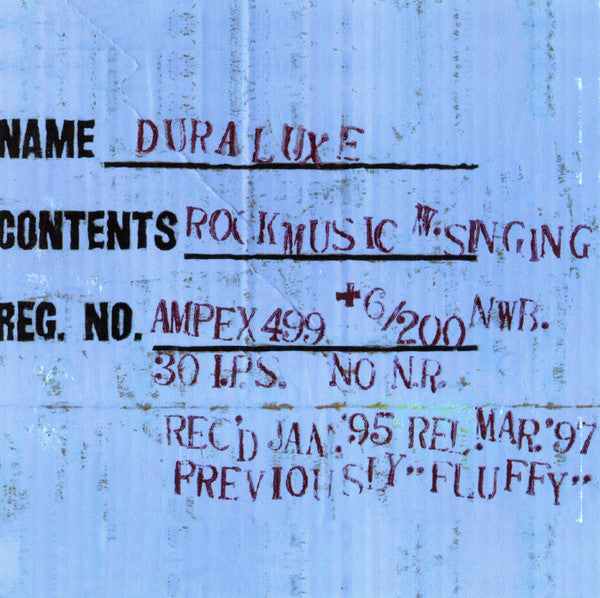 NAME DURALUXE
CONTENTS ROCKMUSIC W. SINGING
REG. NO. AMPEX 499 +6/200 NWB.
30 I.P.S. NO N.R.
REC'D JAN.'95 REL. MAR.'97
PREVIOUSLY "FLUFFY"